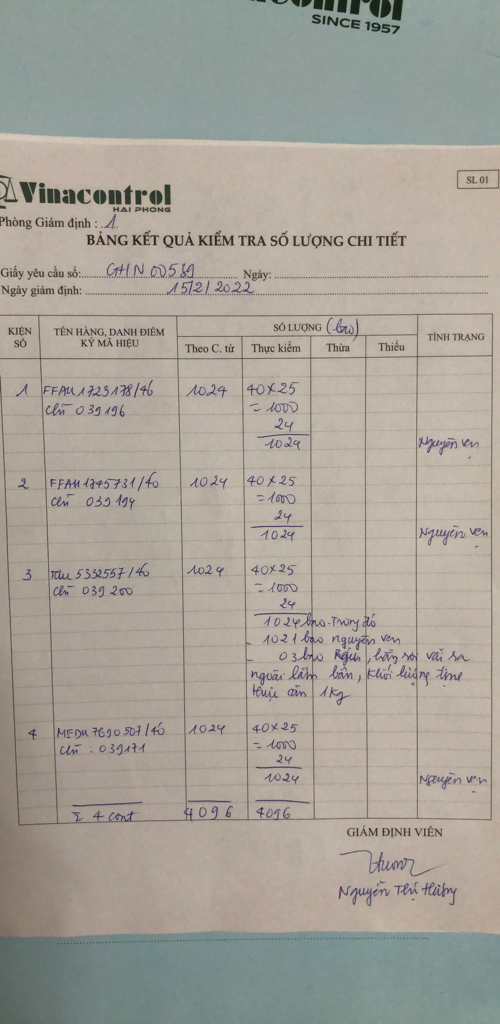 SINCE 1957
Vinacontrol
HAI PHONG
SL 01
Phòng Giám định : 1
BẢNG KẾT QUẢ KIỂM TRA SỐ LƯỢNG CHI TIẾT
Giấy yêu cầu số: GHN 00589 Ngày:
Ngày giám định: 15/2/2022
KIỆN SỐ TÊN HÀNG, DANH ĐIỂM KÝ MÃ HIỆU SỐ LƯỢNG (bao) TÌNH TRẠNG
Theo C. từ Thực kiểm Thừa Thiếu
1 FFAU 1723178/40 1024 40x25
chì 039196 = 1000
24
1024 Nguyên vẹn
2 FFAU 1745731/40 1024 40x25
chì 039194 = 1000
24
1024 Nguyên vẹn
3 5332557/40 1024 40x25
chì 039200 = 1000
24
1024 bao. Trong đó
- 1021 bao nguyên vẹn
- 03 bao rách, hàng rơi vãi ra
ngoài lấm bẩn, khối lượng
1 kg
4 MEDU 7690507/40 1024 40x25
chì . 039171 = 1000
24
1024 Nguyên vẹn
Σ 4 cont 4096 4096
GIÁM ĐỊNH VIÊN
Nguyễn Thị Hường